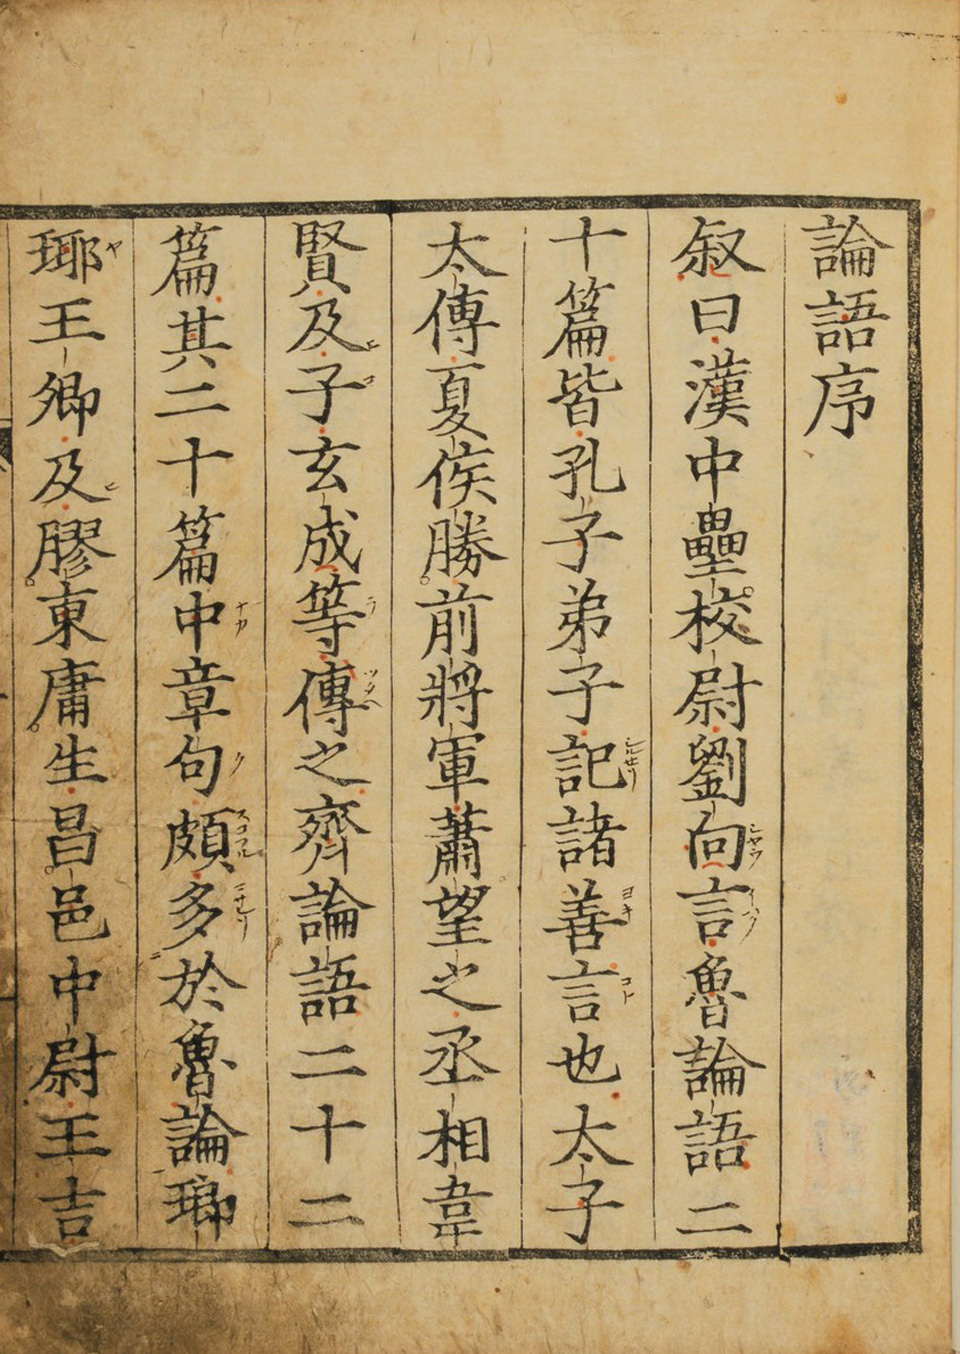 論語序
叙曰漢中壘校尉劉向言魯論語二
十篇皆孔子弟子記諸善言也太子
太傅夏侯勝前將軍蕭望之丞相韋
賢及子玄成等傳之齊論語二十二
篇其二十篇中章句頗多於魯論瑯
瑘王卿及膠東庸生昌邑中尉王吉